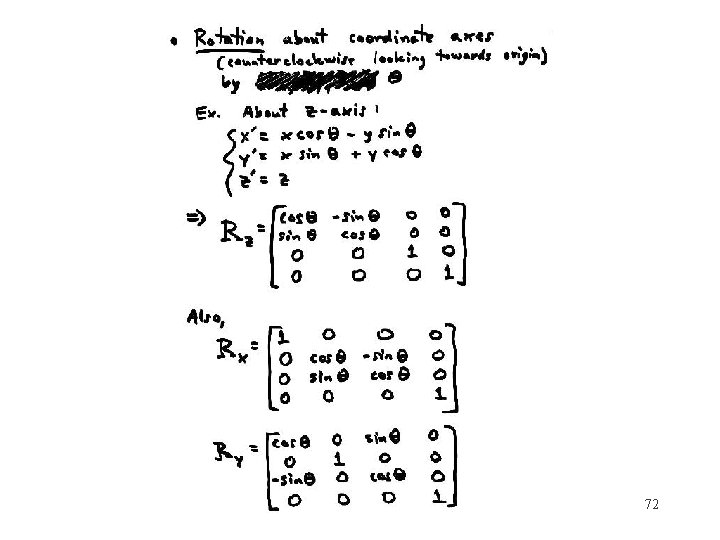 • Rotation about coordinate axes
(counterclockwise looking towards origin)
by θ
Ex. About z-axis:
x' = x cos θ - y sin θ
y' = x sin θ + y cos θ
z' = z
=> R_z = [cos θ -sin θ 0 0
sin θ cos θ 0 0
0 0 1 0
0 0 0 1]
Also,
R_x = [1 0 0 0
0 cos θ -sin θ 0
0 sin θ cos θ 0
0 0 0 1]
R_y = [cos θ 0 sin θ 0
0 1 0 0
-sin θ 0 cos θ 0
0 0 0 1]
72